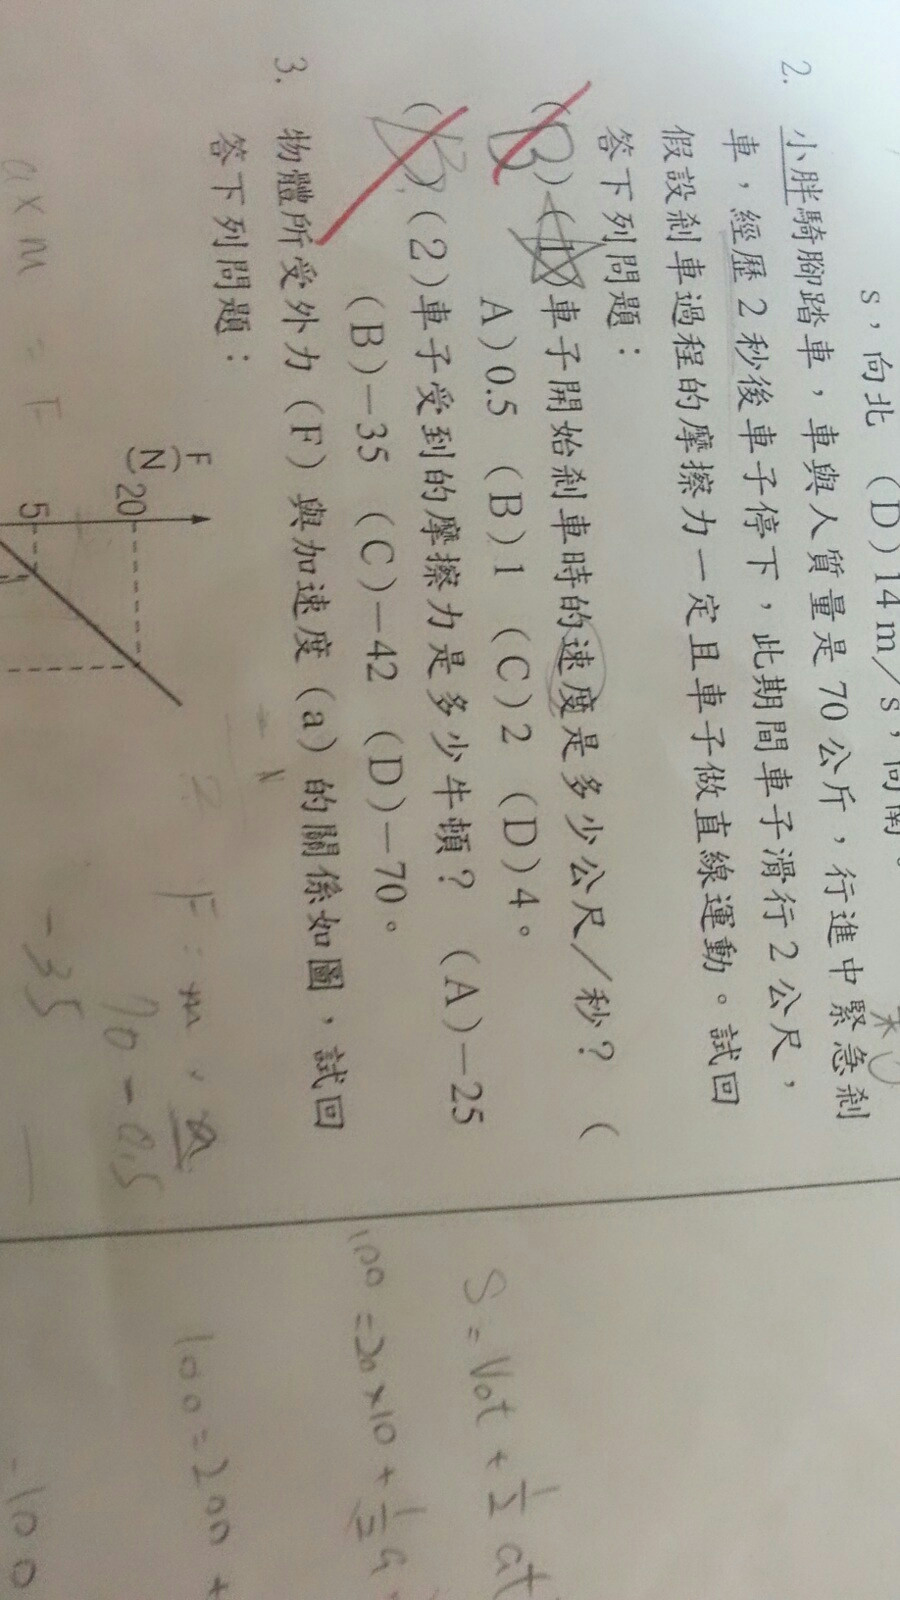 s，向北　(D)14 m／s，向南。
2. 小胖騎腳踏車，車與人質量是70公斤，行進中緊急剎
車，經歷2秒後車子停下，此期間車子滑行2公尺，
假設剎車過程的摩擦力一定且車子做直線運動。試回
答下列問題：
(B)(1)車子開始剎車時的速度是多少公尺／秒？　(
A)0.5　(B)1　(C)2　(D)4。
(B)(2)車子受到的摩擦力是多少牛頓？　(A)－25
(B)－35　(C)－42　(D)－70。
3. 物體所受外力(F)與加速度(a)的關係如圖，試回
答下列問題：
F
(N)
20
5
a×m=F
F=m·a
70 -0.5
-35
S=V₀t+½at
100=20×10+½a
100=200+
-100